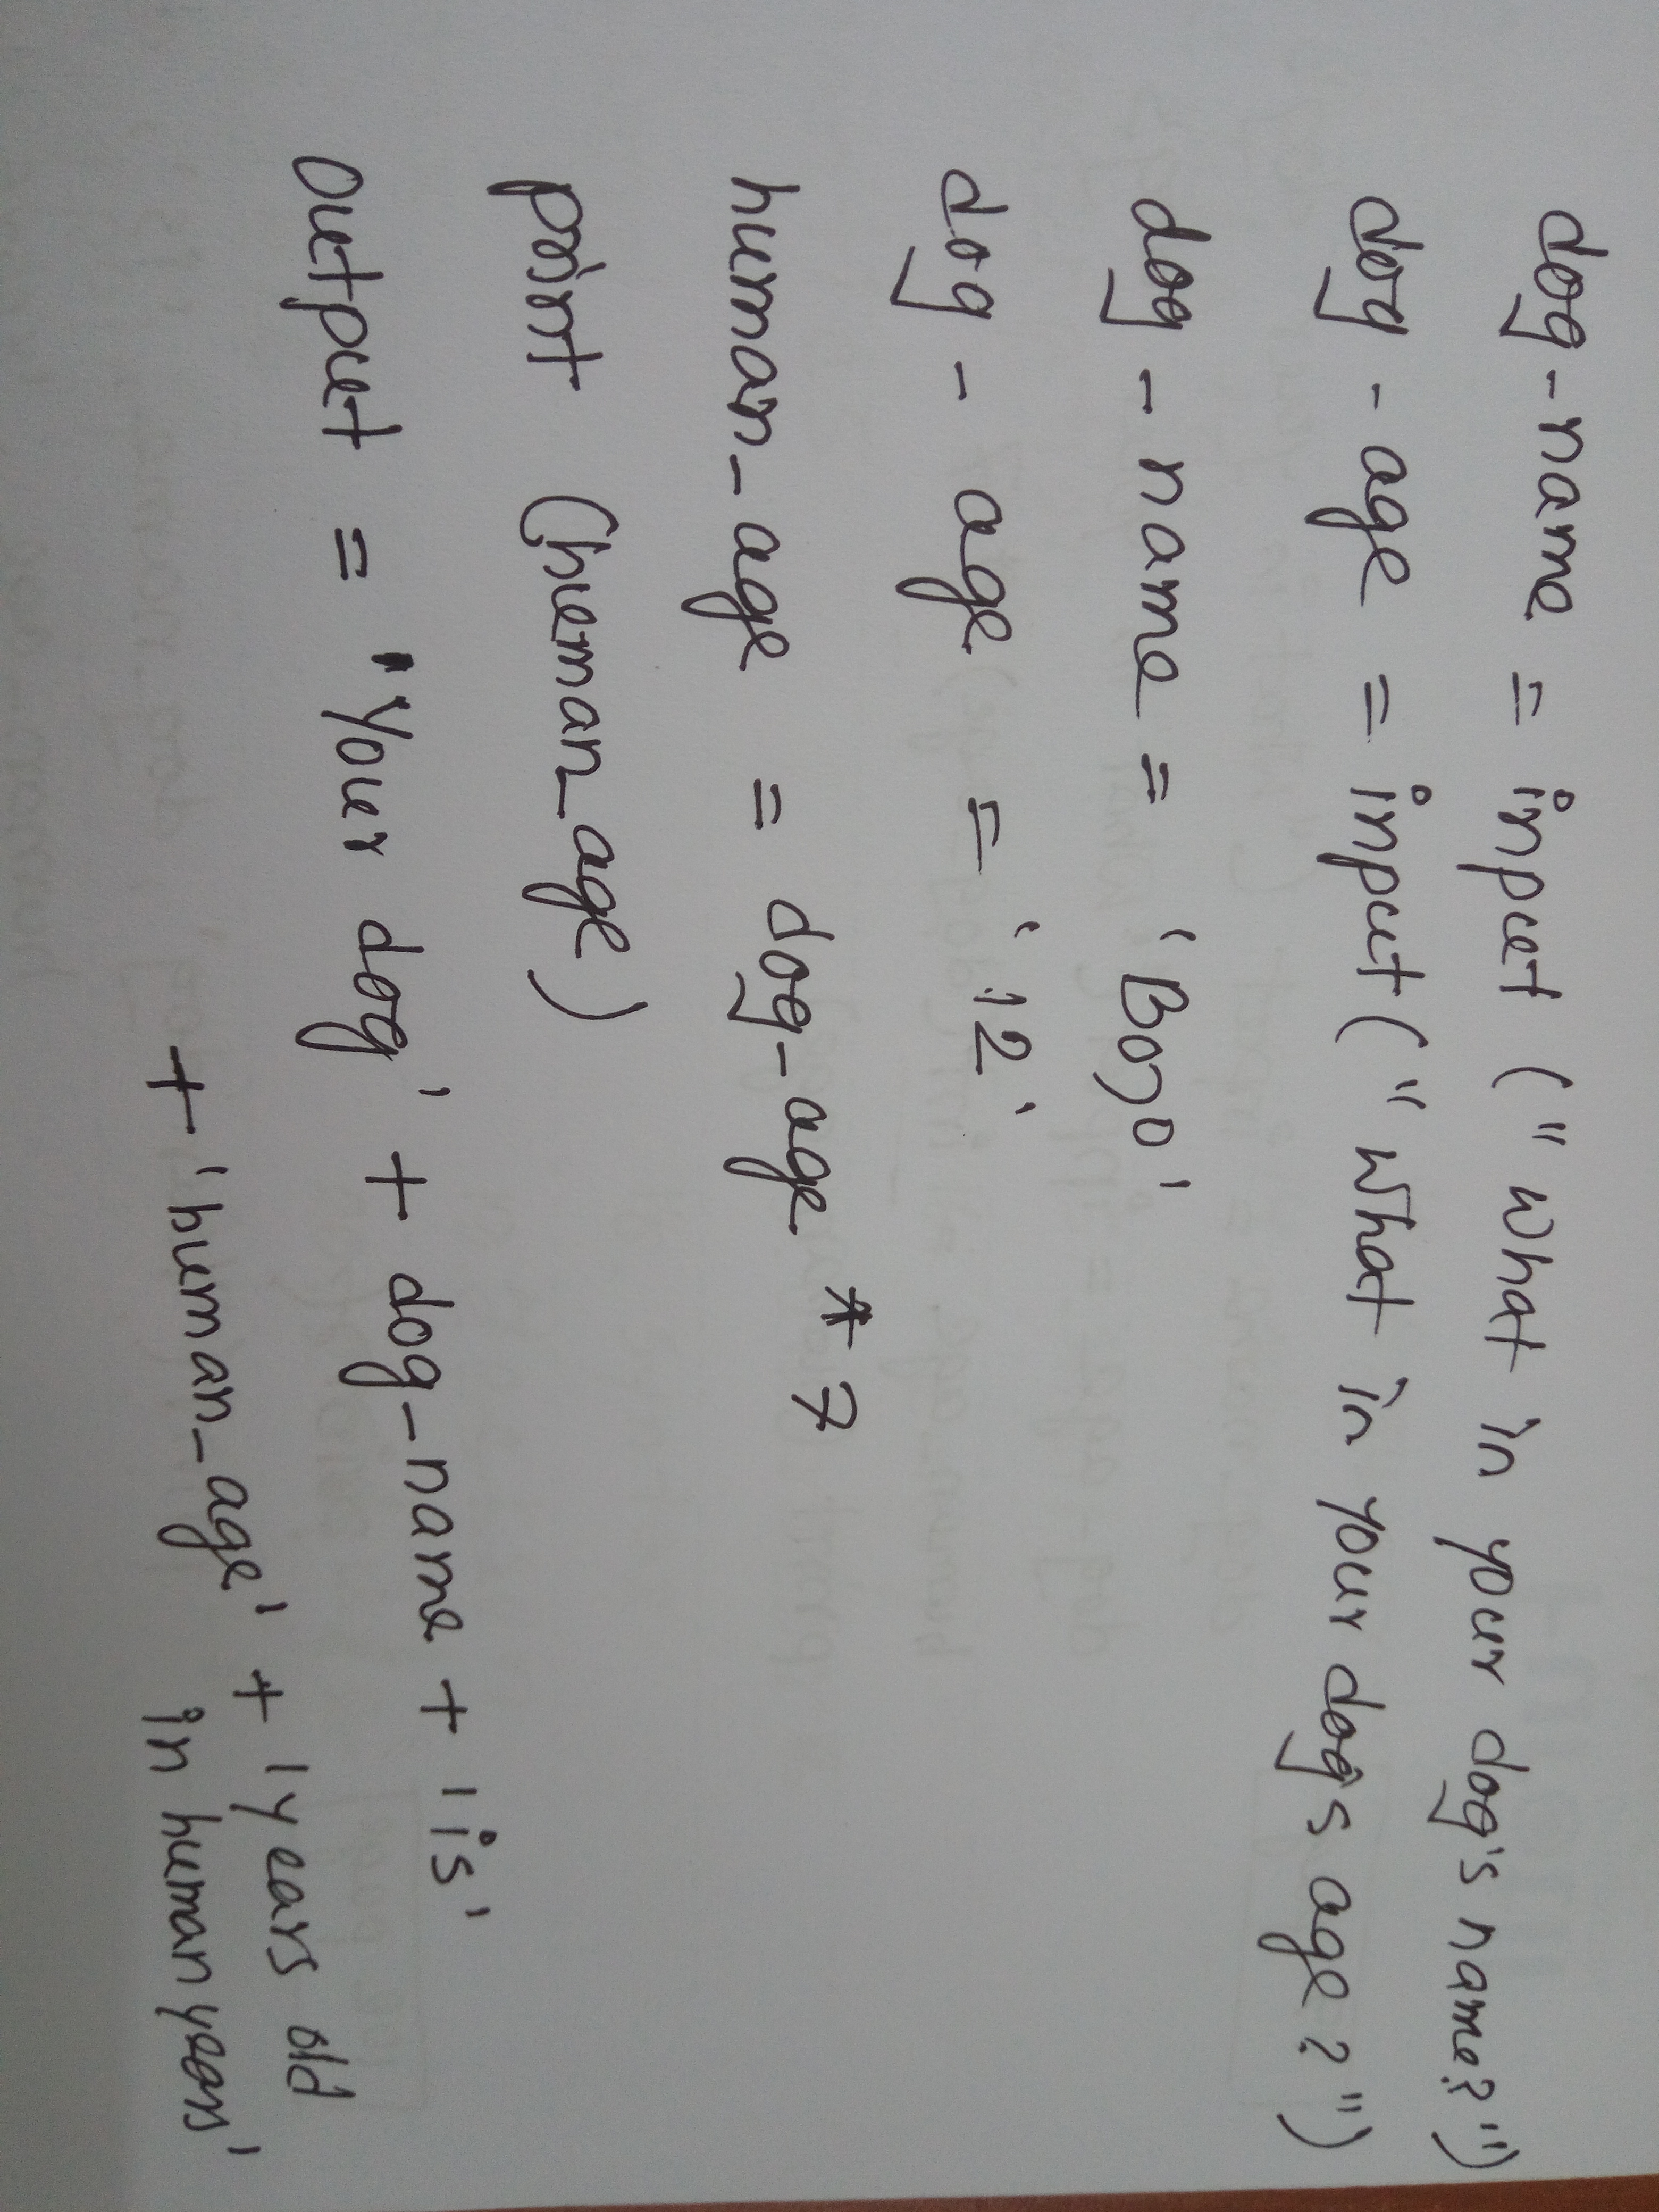 dog-name = input ("What in your dog's name?")
dog-age = input ("What in your dog's age?")
dog_name = 'Bozo'
dog-age = '12'
human_age = dog_age * 7
print (human_age)
output = 'Your dog' + dog_name + 'is'
+ 'human_age' + 'years old
in human years'